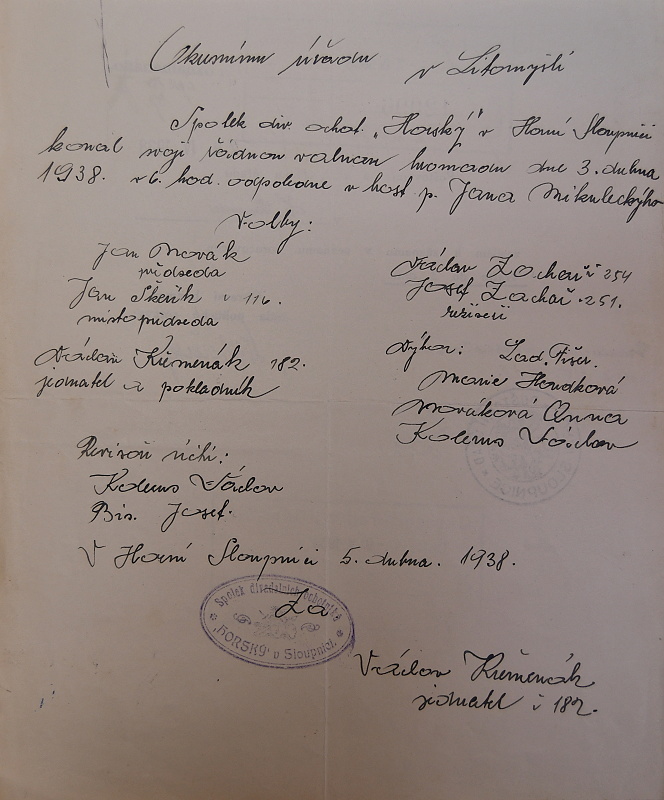 Okresnímu úřadu v Litomyšli
Spolek div. ochot. „Horský" v Horní Sloupnici
konal svoji řádnou valnou hromadu dne 3. dubna
1938. v 6. hod. odpoledne v host p. Jana Mikuleckýho
Volby:
Jan Novák
předseda
Jan Škeřík č 116.
místopředseda
Václav Křmenák 182.
jednatel a pokladník
Revisoři účtů:
Kolems Václav
Bis. Josef.
Václav Zachař 254
Josef Zachař 251.
režiseři
Výbor: Lad. Fišer.
Marie Houdková
Nováková Anna
Kolems Václav
V Horní Sloupnici 5. dubna. 1938.
Za
Spolek divadelních ochotníků
„HORSKÝ" v Sloupnici.
Václav Křmenák
jednatel č 182.